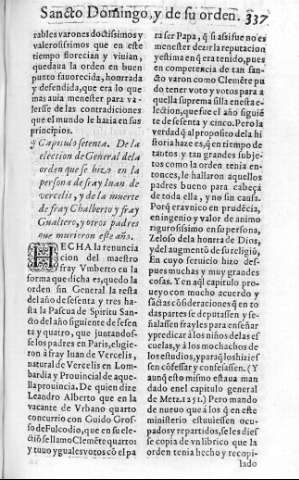 Sancto Domingo, y de su orden. 337
rables varones doctissimos y
valerosissimos que en este
tiempo florecian y viuian,
quedaua la orden en buen
punto fauorecida, honrrada
y defendida, que era lo que
mas auia menester para va-
lerse de las contradiciones
que el mundo le hazia en sus
principios.
Capitulo setenta. De la
election de General de la
orden que se hizo en la
persona de fray Iuan de
vercelis, y de la muerte
de fray Chalberto y fray
Gualtero, y otros padres
que murieron este año.
HECHA la renuncia
cion del maestro
fray Vmberto en la
forma que dicha es, quedo la
orden sin General la resta
del año de sesenta y tres has-
ta la Pascua de Spiritu San-
cto del año siguiente de sesen
ta y quatro, que juntando-
se los padres en Paris, eligie-
ron a fray Iuan de Vercelis,
natural de Vercelis en Lom-
bardia y Prouincial de aque-
lla prouincia. De quien dize
Leandro Alberto que en la
vacante de Vrbano quarto
concurrio con Guido Gros-
so de Fulcodio, que en su ele-
ctiō se llamo Clemēte quarto
y tuuo yguales votos cō el pa
ra ser Papa, q̄ si assi fue no es
menester dezir la reputacion
y estima en q̄ era tenido, pues
en competencia de tan san-
cto varon como Clemēte pu-
do tener voto y votos para a
quella suprema silla en esta e-
lection, que fue el año siguiē
te de sesenta y cinco. Pero la
verdad q̄ al proposito de la hi
storia haze es, q̄ en tiempo de
tantos y tan grandes subje-
tos como la orden tenia en-
tonces, le hallaron aquellos
padres bueno para cabeça
de toda ella, y no sin causa.
Porq̄ era viuo en prudēcia,
en ingenio y valor de animo
rigurosissimo en su persona,
Zeloso de la honrra de Dios,
y del augmento de su religiō,
En cuyo seruicio hizo des-
pues muchas y muy grandes
cosas. Y en aql̄ capitulo pro-
ueyo con mucho acuerdo y
sactas cōsideraciones q̄ en to
das partes se deputassen y se-
ñalassen frayles para enseñar
y predicar à los niños de las es
cuelas, y à los mochachos de
los estudios, y paraq̄ los hizies
sen cōfessar y confessassen. (Y
aunq̄ esto mismo estaua man
dado en el capitulo general
de Metz. 1251.) Pero mando
de nueuo que à los q̄ en este
ministerio estuuiessen ocu-
pados y repartidos, se les dies
se copia de vn librico que la
orden tenia hecho y recopi-
lado